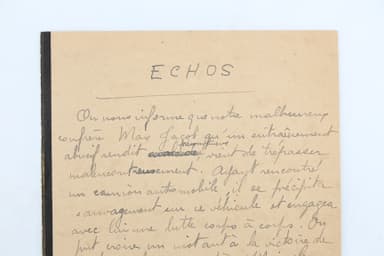 ECHOS
On nous informe que notre malheureux
confrère Max Jacob qu'un entraînement
abusif rendit vient de trépasser
malencontreusement. Ayant rencontré
un camion automobile, il se précipita
sauvagement sur ce véhicule et engagea
avec lui une lutte corps à corps. On
put croire un instant à la victoire de